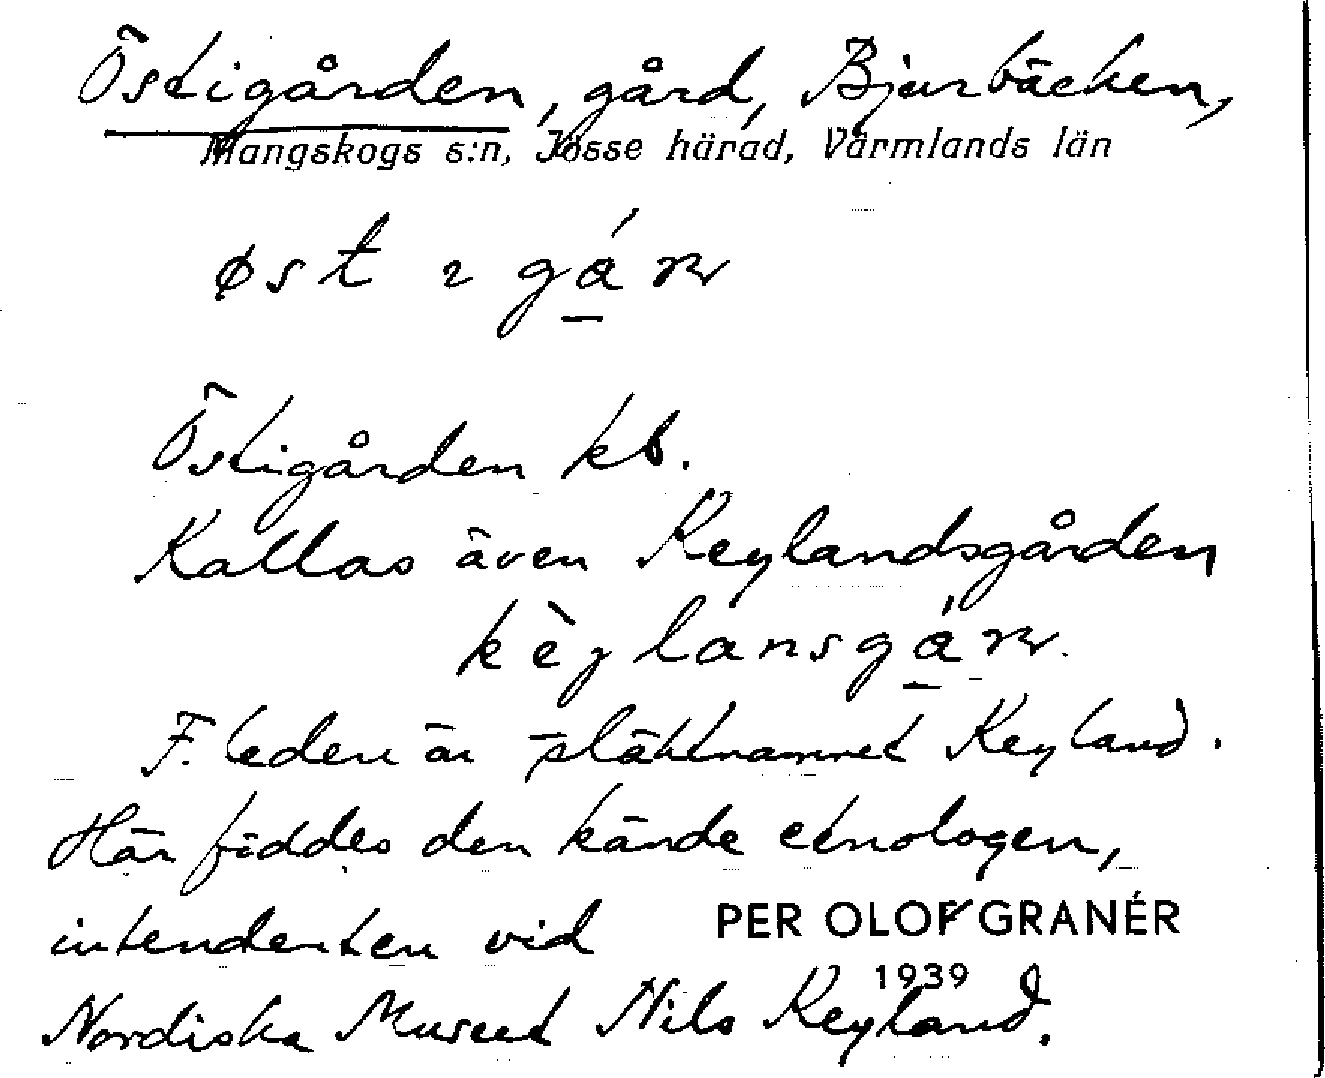 Östigården, gård, Bjurbäcken,
Mangskogs s:n, Jösse härad, Värmlands län
øst ı gá̱ṛ
Östigården kb.
Kallas även Keylandsgården
kèylansgá̱ṛ.
F. leden är släktnamnet Keyland.
Här föddes den kände etnologen,
intendenten vid
PER OLOF GRANÉR
1939
Nordiska Museet Nils Keyland.